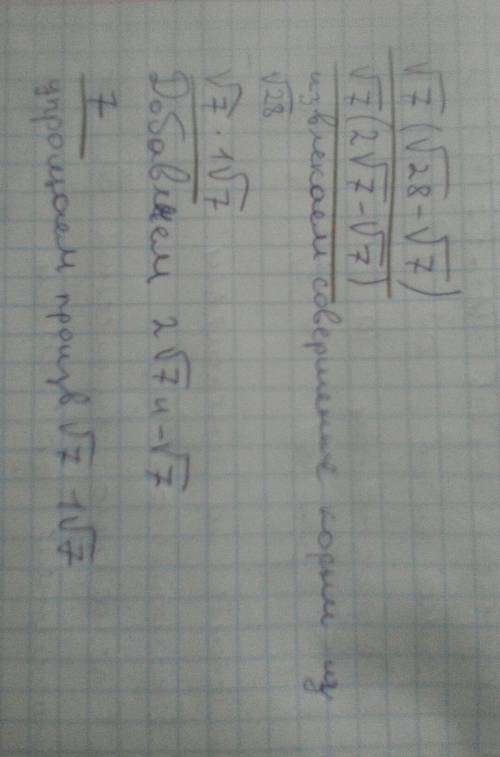 √7 (√28 - √7)
√7 (2√7 - √7)
извлекаем совершенные корни из
√28
√7 · 1√7
Добавляем 2√7 и -√7
7
упрощаем произв √7 1√7